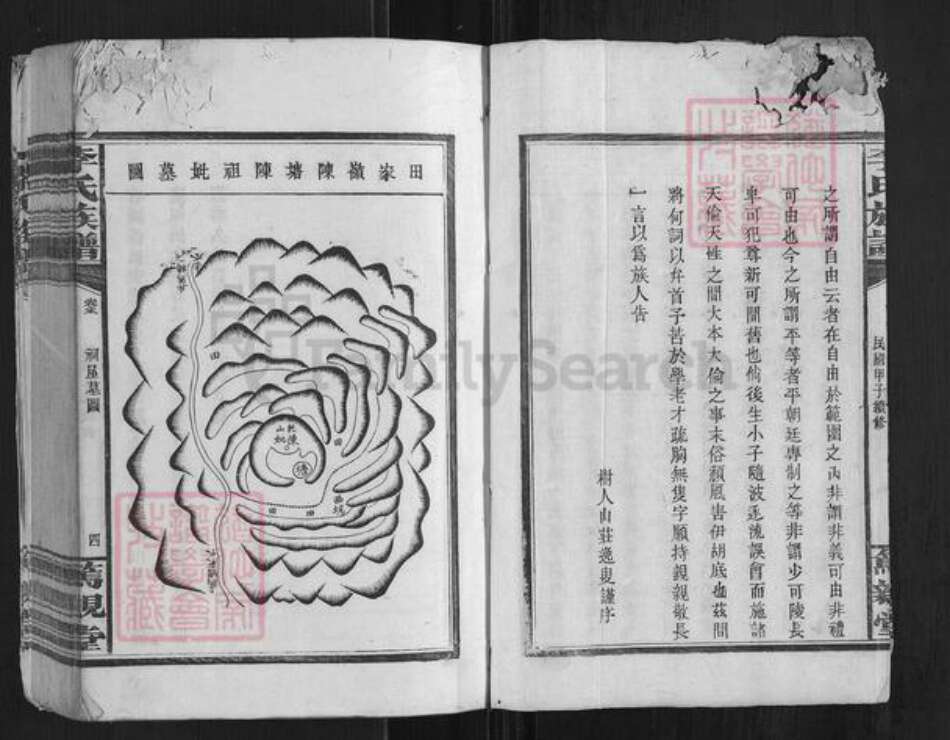 之所謂自由云者在自由於範圍之內非謂非義可由非禮
可由也今之所謂平等者平朝廷專制之等非謂少可陵長
卑可犯尊新可間舊也倘後生小子隨波逐流誤會而施諸
天倫天性之間大本大倫之事末俗頹風害伊胡底也茲間
將何詞以弁首予苦於學老才疏胸無隻字願持親親敬長
一言以爲族人告
樹人山莊逸叟謹序
民國甲子續修
篤親堂
田家嶺陳塘陳祖妣墓圖
田
乾山
陳妣
塘
田
田
田
李氏族譜
祠屋墓圖
四
篤親堂
FamilySearch